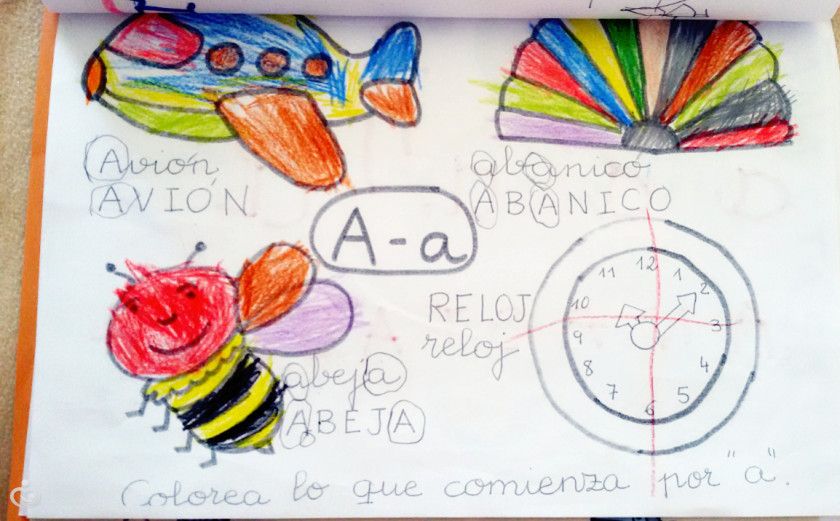 Avión
AVIÓN
abanico
ABANICO
A-a
RELOJ
reloj
12
1
2
3
4
5
6
7
8
9
10
11
abeja
ABEJA
Colorea lo que comienza por "a".